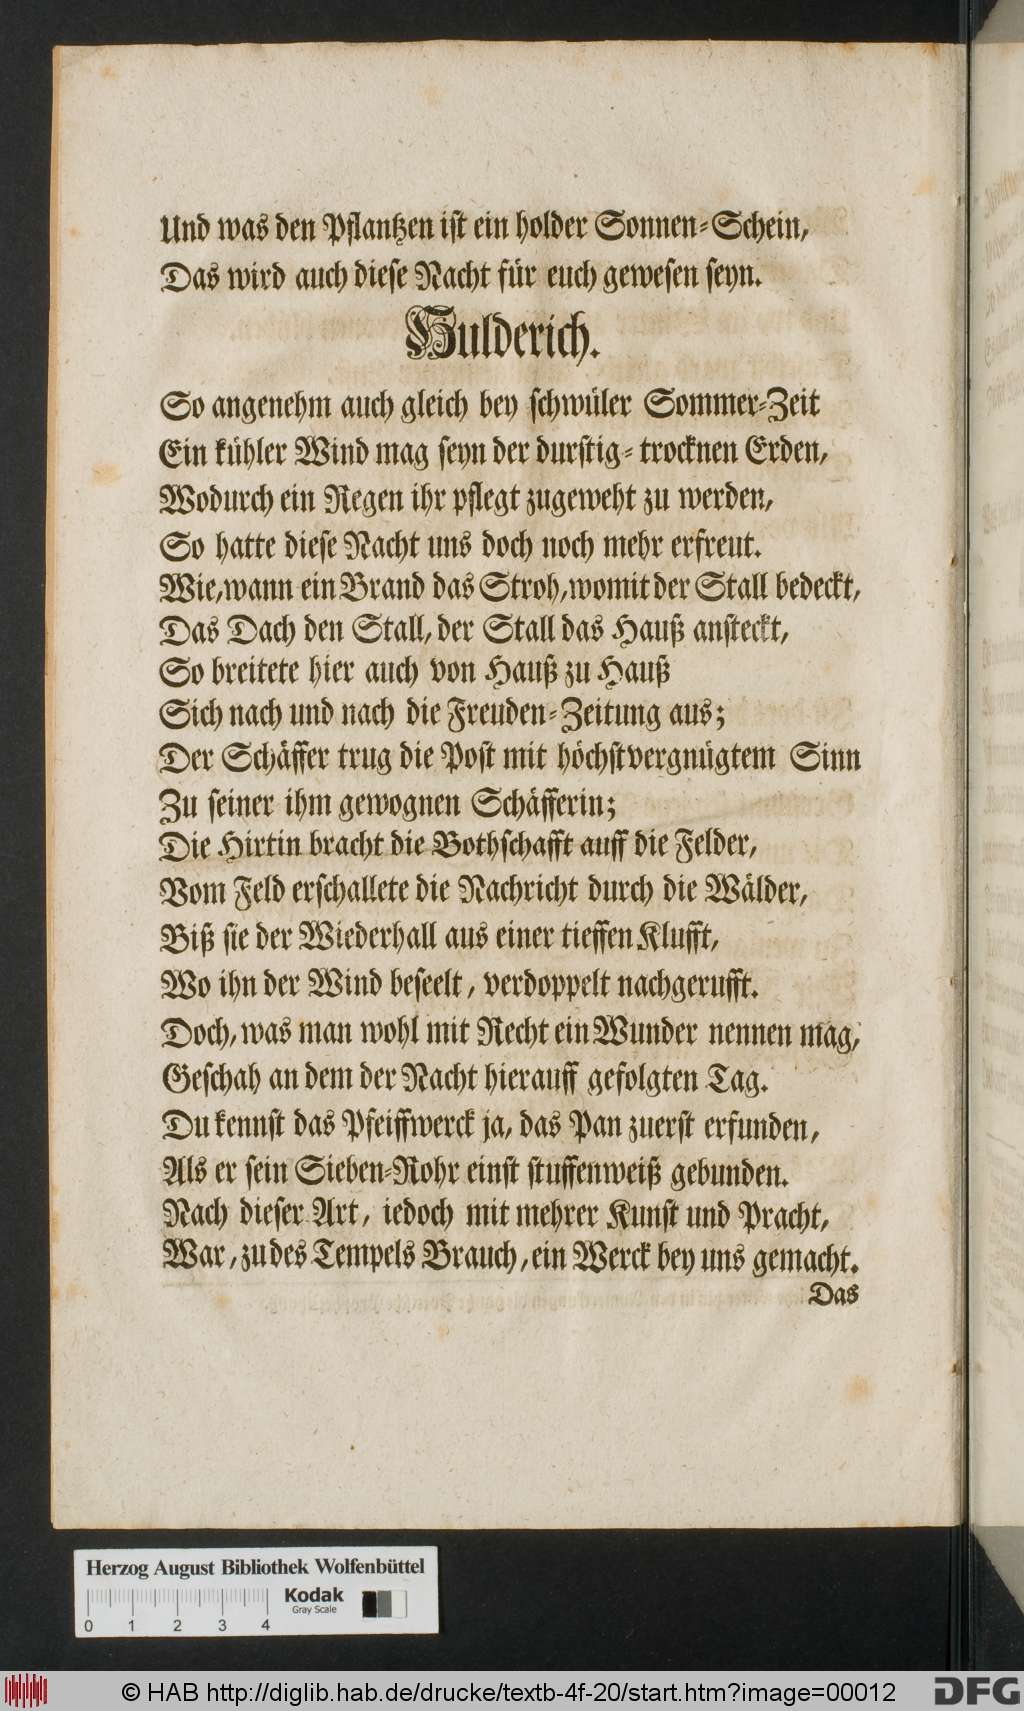 Und was den Pflantzen ist ein holder Sonnen-Schein,
Das wird auch diese Nacht für euch gewesen seyn.
Hulderich.
So angenehm auch gleich bey schwüler Sommer-Zeit
Ein kühler Wind mag seyn der durstig-trocknen Erden,
Wodurch ein Regen ihr pflegt zugeweht zu werden,
So hatte diese Nacht uns doch noch mehr erfreut.
Wie, wann ein Brand das Stroh, womit der Stall bedeckt,
Das Dach den Stall, der Stall das Hauß ansteckt,
So breitete hier auch von Hauß zu Hauß
Sich nach und nach die Freuden-Zeitung aus;
Der Schäffer trug die Post mit höchstvergnügtem Sinn
Zu seiner ihm gewognen Schäfferin;
Die Hirtin bracht die Bothschafft auff die Felder,
Vom Feld erschallete die Nachricht durch die Wälder,
Biß sie der Wiederhall aus einer tieffen Klufft,
Wo ihn der Wind beseelt, verdoppelt nachgerufft.
Doch, was man wohl mit Recht ein Wunder nennen mag,
Geschah an dem der Nacht hierauff gefolgten Tag.
Du kennst das Pfeiffwerck ja, das Pan zuerst erfunden,
Als er sein Sieben-Rohr einst stuffenweiß gebunden.
Nach dieser Art, iedoch mit mehrer Kunst und Pracht,
War, zu des Tempels Brauch, ein Werck bey uns gemacht.
Das
Herzog August Bibliothek Wolfenbüttel
Kodak
Gray Scale
0 1 2 3 4
© HAB http://diglib.hab.de/drucke/textb-4f-20/start.htm?image=00012
DFG